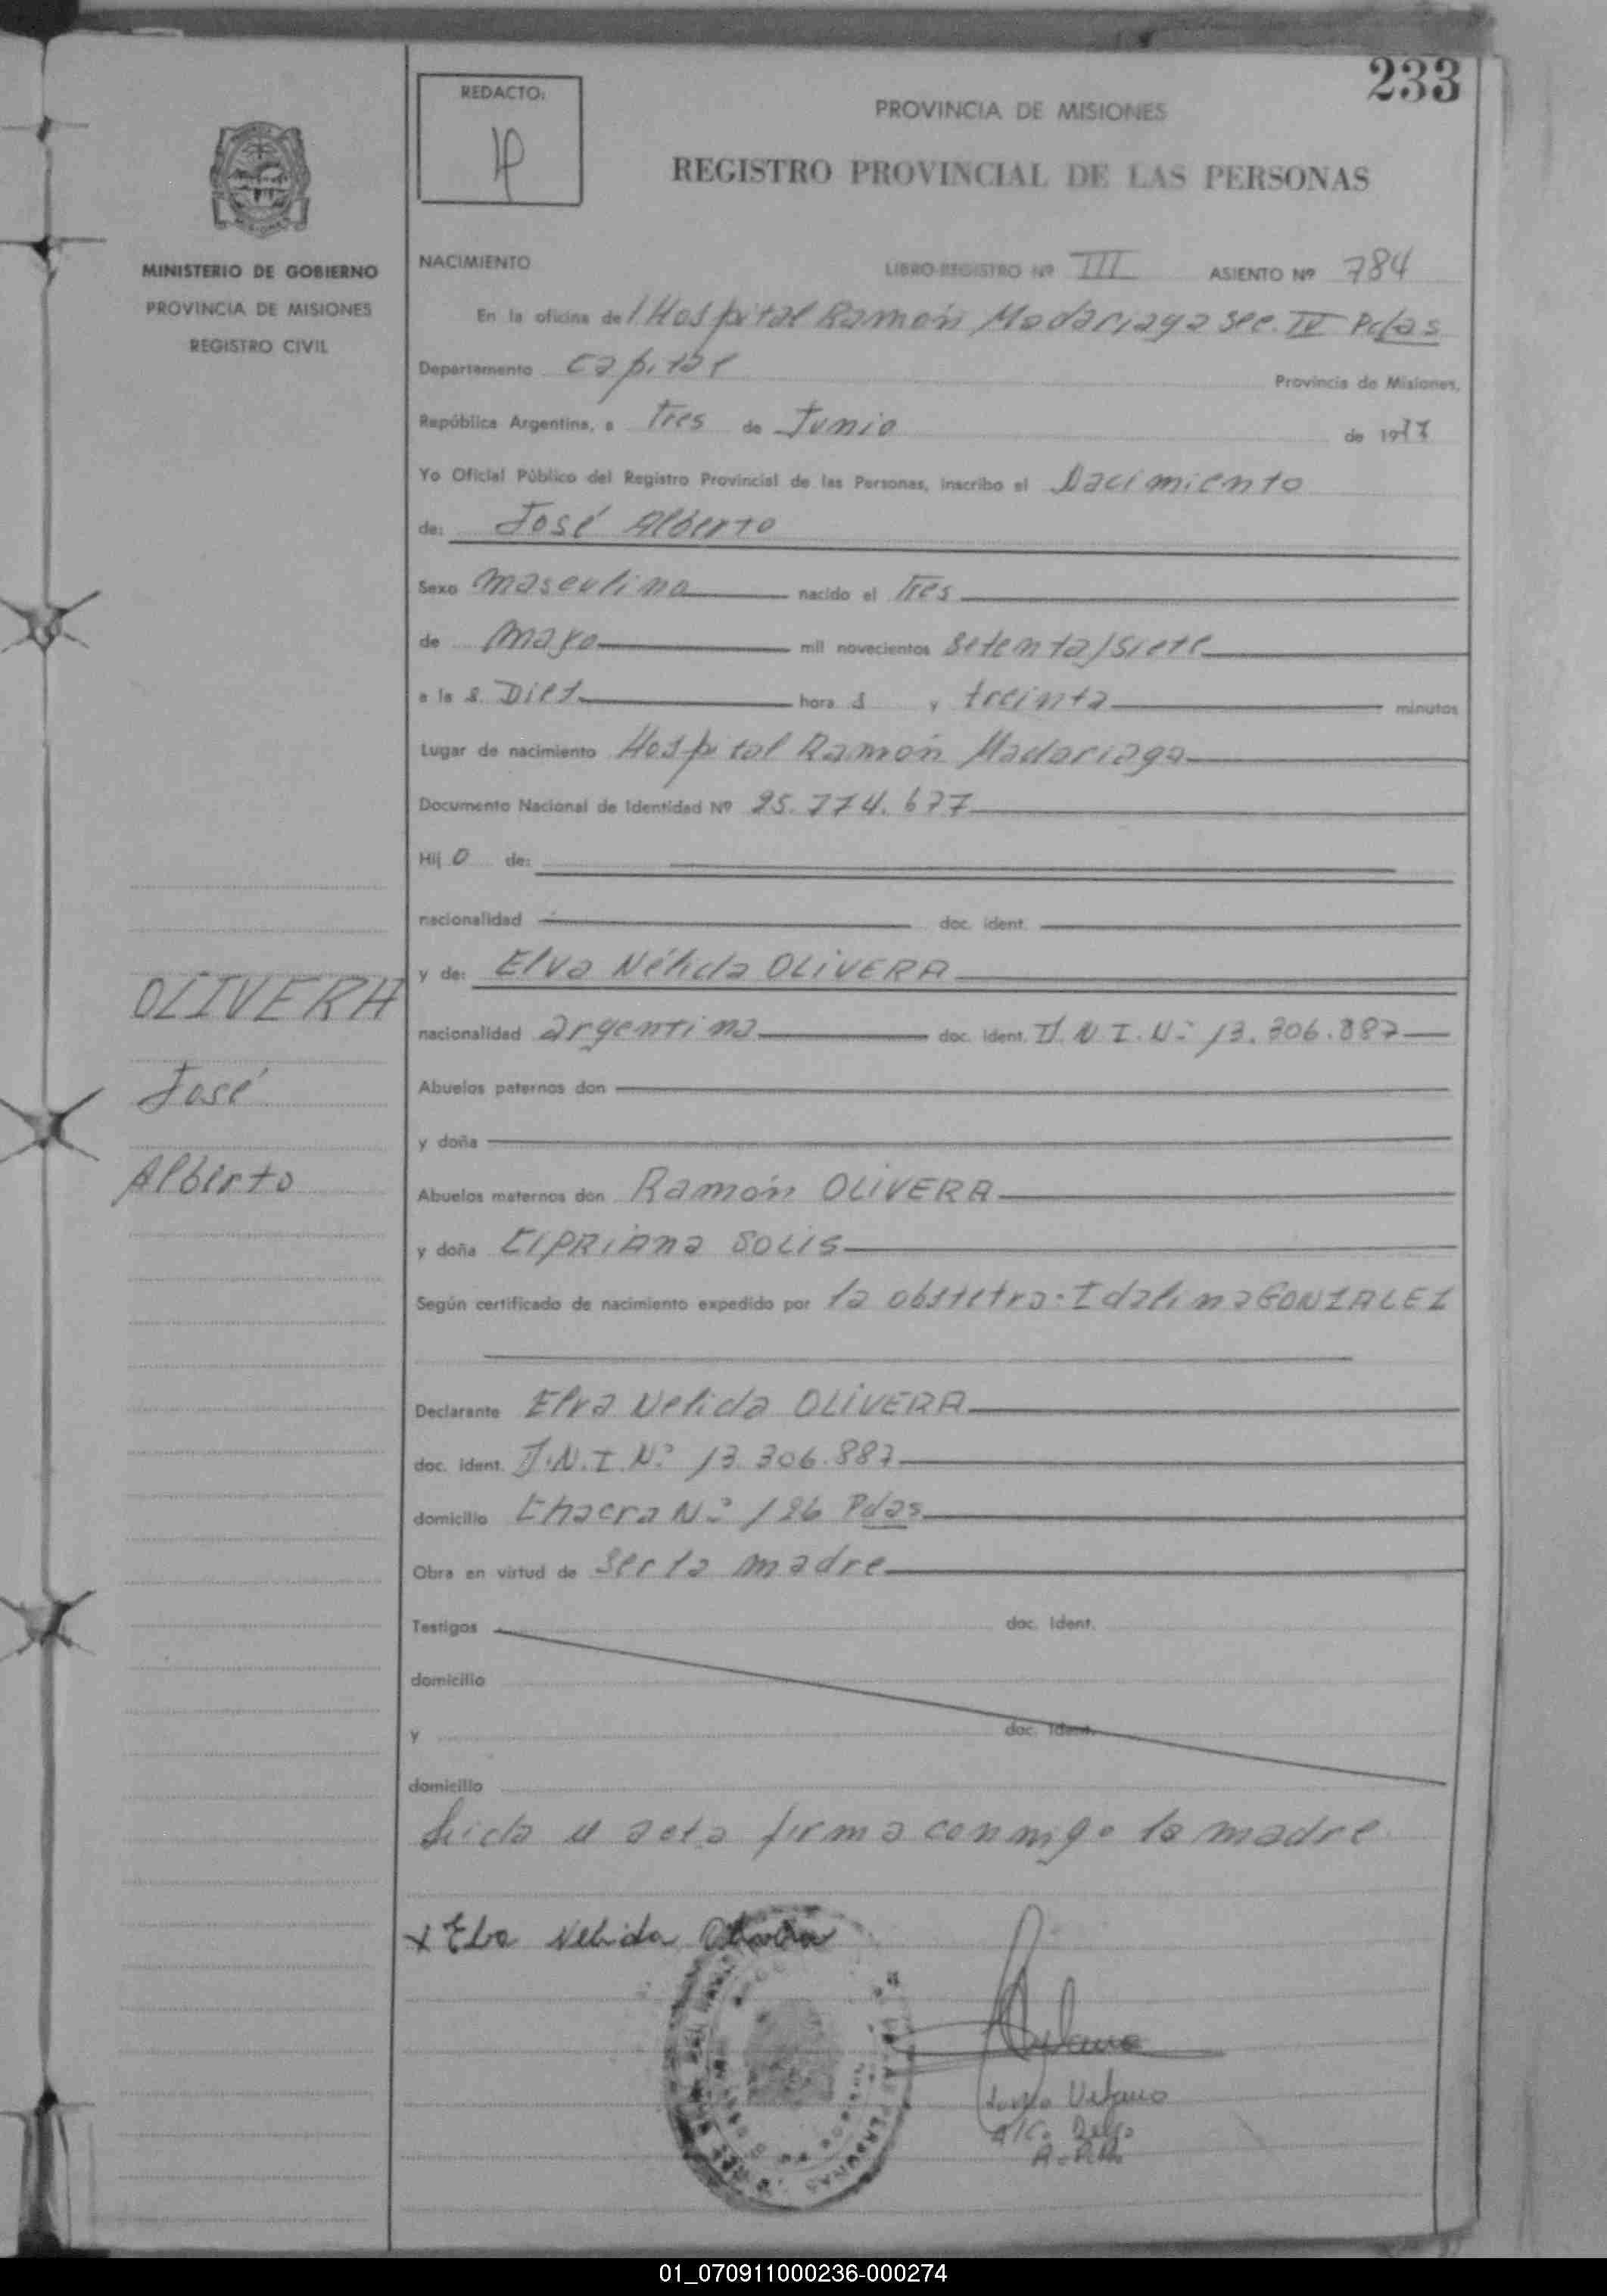 233
REDACTO:
PROVINCIA DE MISIONES
REGISTRO PROVINCIAL DE LAS PERSONAS
MINISTERIO DE GOBIERNO
PROVINCIA DE MISIONES
REGISTRO CIVIL
NACIMIENTO LIBRO-REGISTRO Nº III ASIENTO Nº 784
En la oficina del Hospital Ramón Madariaga sec. IV Pdas
Departamento Capital Provincia de Misiones,
República Argentina, a Tres de Junio de 1977
Yo Oficial Público del Registro Provincial de las Personas, inscribo el Nacimiento
de: José Alberto
Sexo masculino nacido el Tres
de mayo mil novecientos setenta/siete
a las Diez horas y treinta minutos
Lugar de nacimiento Hospital Ramón Madariaga
Documento Nacional de Identidad Nº 25.774.677
Hijo de:
nacionalidad doc. ident.
y de: Elva Nélida OLIVERA
nacionalidad argentina doc. ident. D.N.I.Nº 13.306.887
Abuelos paternos don
y doña
Abuelos maternos don Ramón OLIVERA
y doña CIPRIANA SOLIS
Según certificado de nacimiento expedido por la obstetra. Idalina GONZALEZ
Declarante Elva Nelida OLIVERA
doc. ident. D.N.I.Nº 13.306.887
domicilio Chacra Nº 126 Pdas
Obra en virtud de ser la madre
Testigos doc. ident.
domicilio
y doc. ident.
domicilio
Leida el acta firma conmigo la madre
OLIVERA
José
Alberto
x Elva Nelida Olivera
01_070911000236-000274